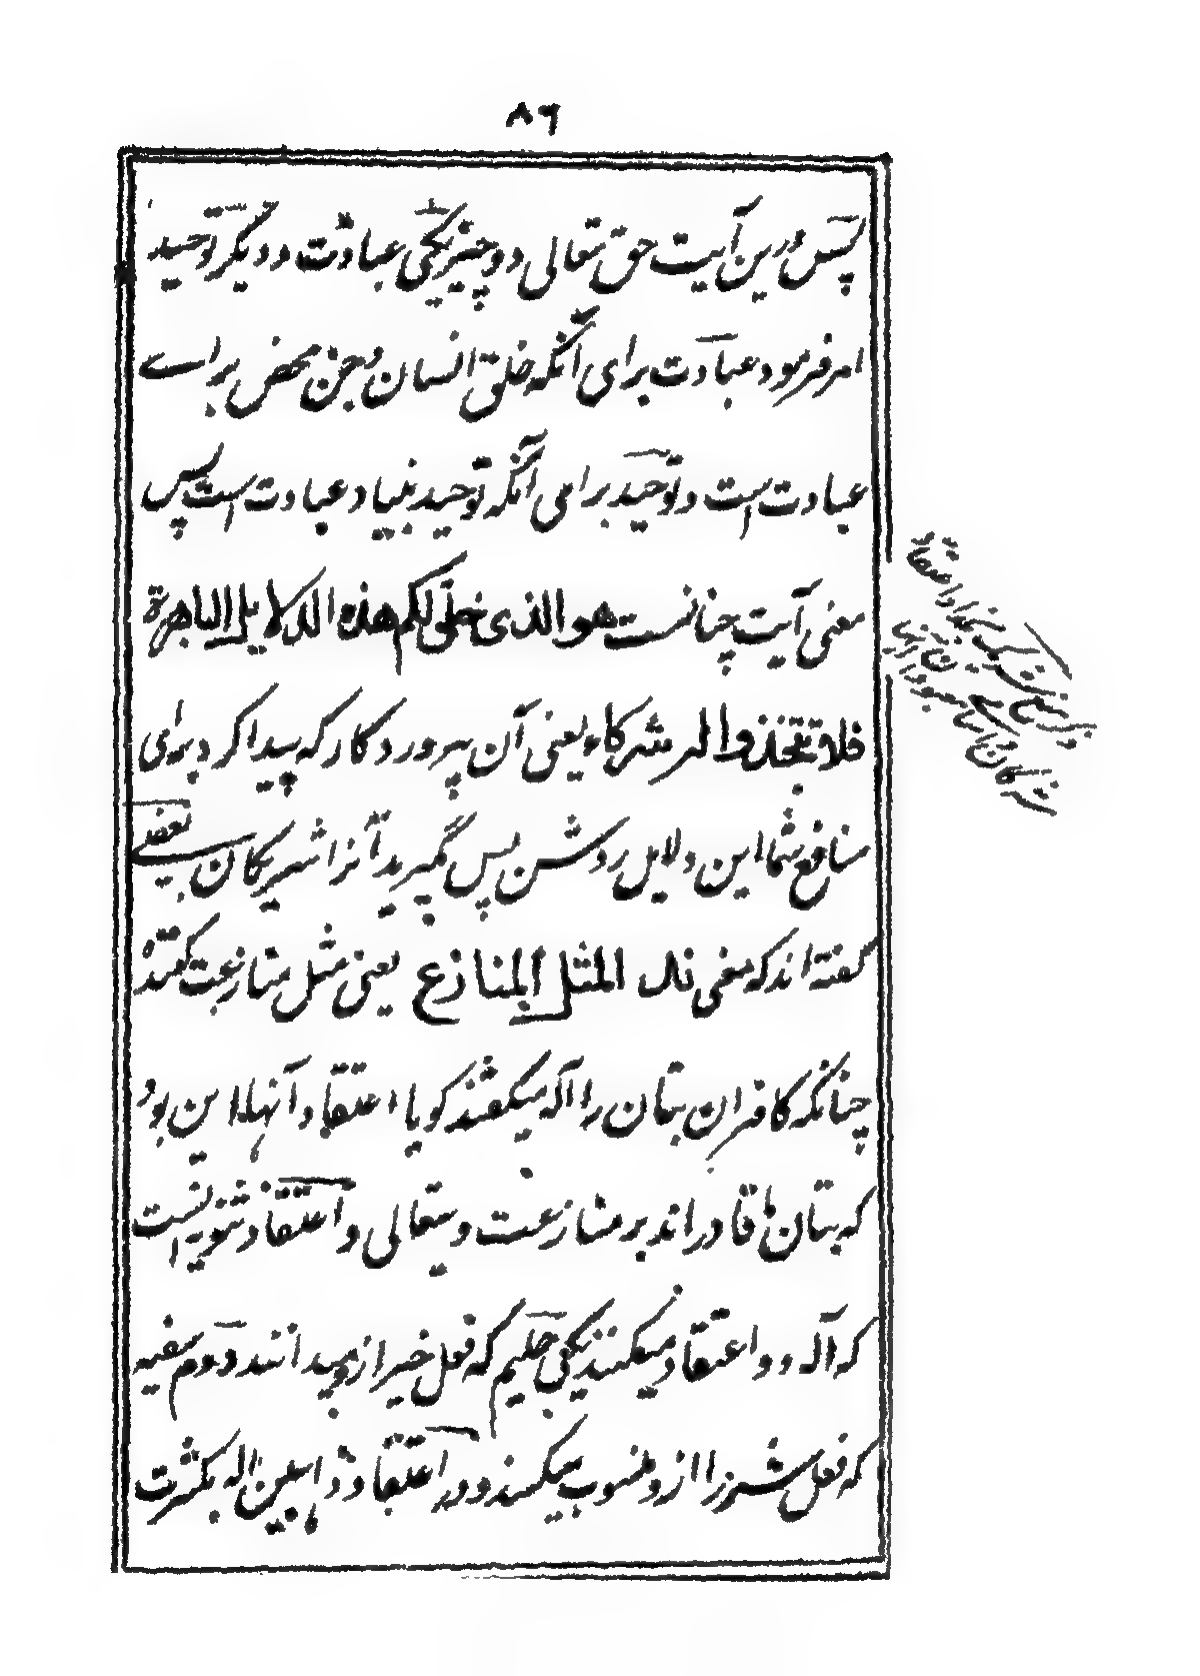 ۸۶
پس درین آیت حق تعالی دو چیز یکی عبادت و دیگر توحید
امر فرمود عبادت برای آنکه خلق انسان و جن محض براے
عبادت است و توحید برای آنکه توحید بنیاد عبادت است پس
معنی آیت چنانست هو الذی خلق لکم هذه الدلایل الباهرة
فلا تتخذوا له شرکاء یعنی آن پروردگار که پیدا کرد برای
منافع شما این دلایل روشن پس مگیرید آنرا شریکان بعضے
گفته اند که معنی ند المثل المنازع یعنی مثل منازعت کننده
چنانکه کافران بتان را آله میگفتند گویا اعتقاد آنها این بود
که بتان ها قادر اند بر منازعت وتعالی و اعتقاد ثنویه اینست
که آله دو اعتقاد میکنند یکی حلیم که فعل خیر ازو میدانند دوم سفیه
که فعل شر را ازو منسوب میکنند و در اعتقاد و ذاهبین اله بکثرت